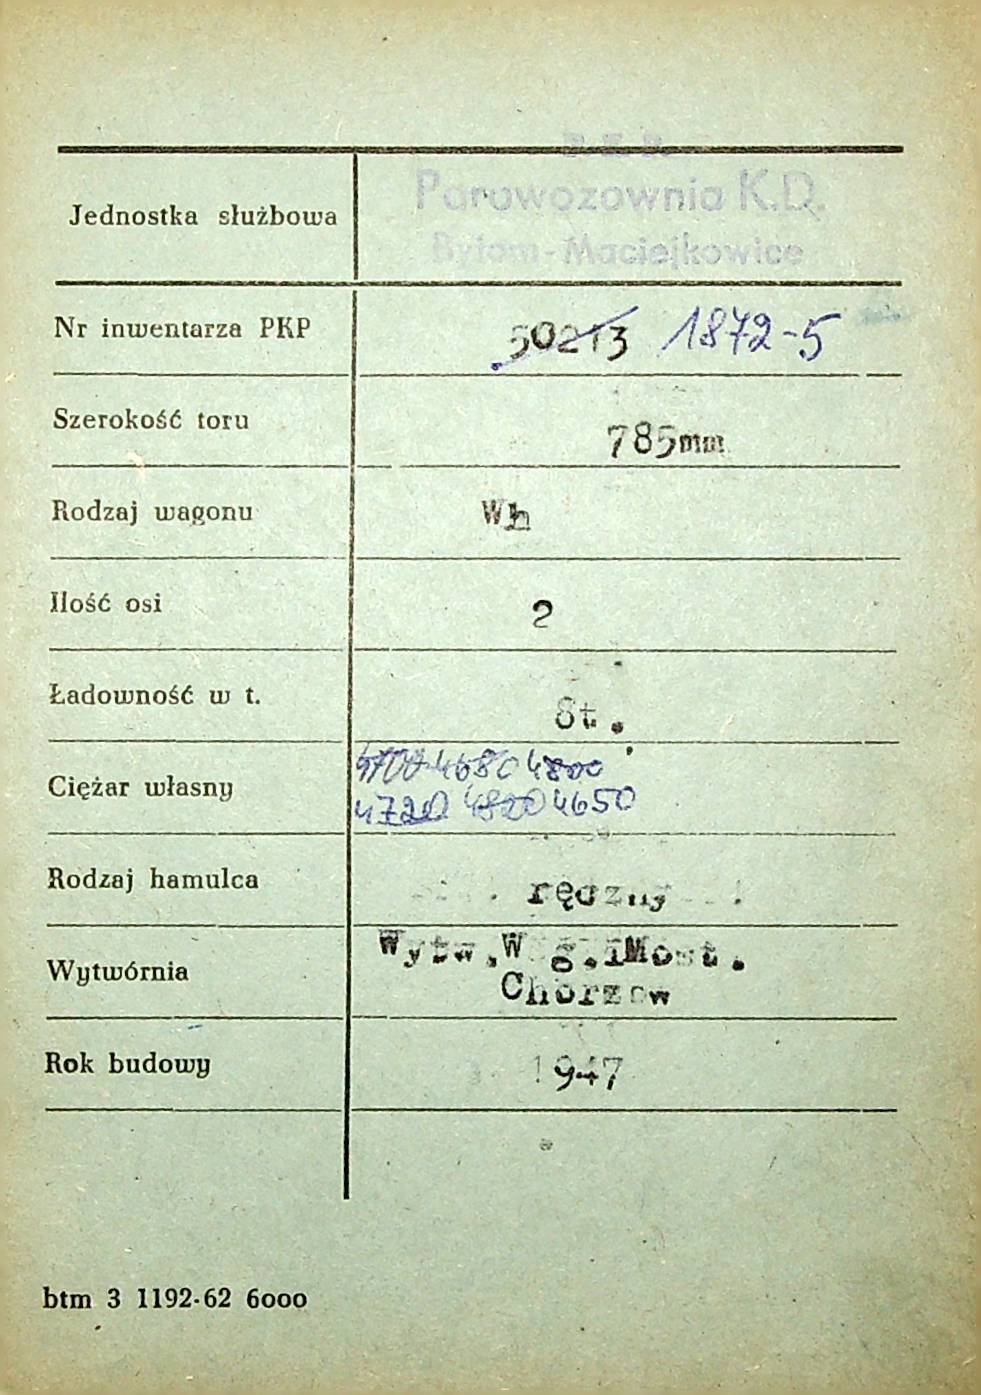 Parowozownia K.D.
Jednostka służbowa
Bytom-Maciejkowice
Nr inwentarza PKP 50213 1872-5
Szerokość toru 785mm
Rodzaj wagonu Wh
Ilość osi 2
Ładowność w t. 8t.
4700 4680 4800
Ciężar własny
4720 4820 4650
Rodzaj hamulca ręczny
Wytw.Wag.iMost.
Wytwórnia
Chorzow
Rok budowy 1947
btm 3 1192-62 6000